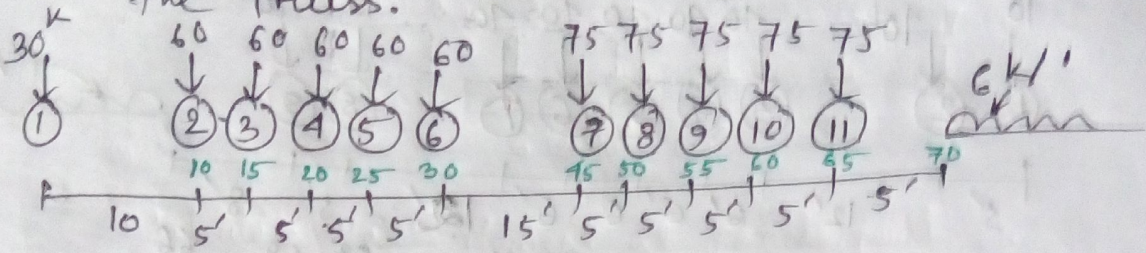 the Truss.
30 K
60 60 60 60 60 75 75 75 75 75
6 K/'
1 2 3 4 5 6 7 8 9 10 11
10 15 20 25 30 45 50 55 60 65 70
10 5' 5' 5' 5' 15' 5' 5' 5' 5' 5'